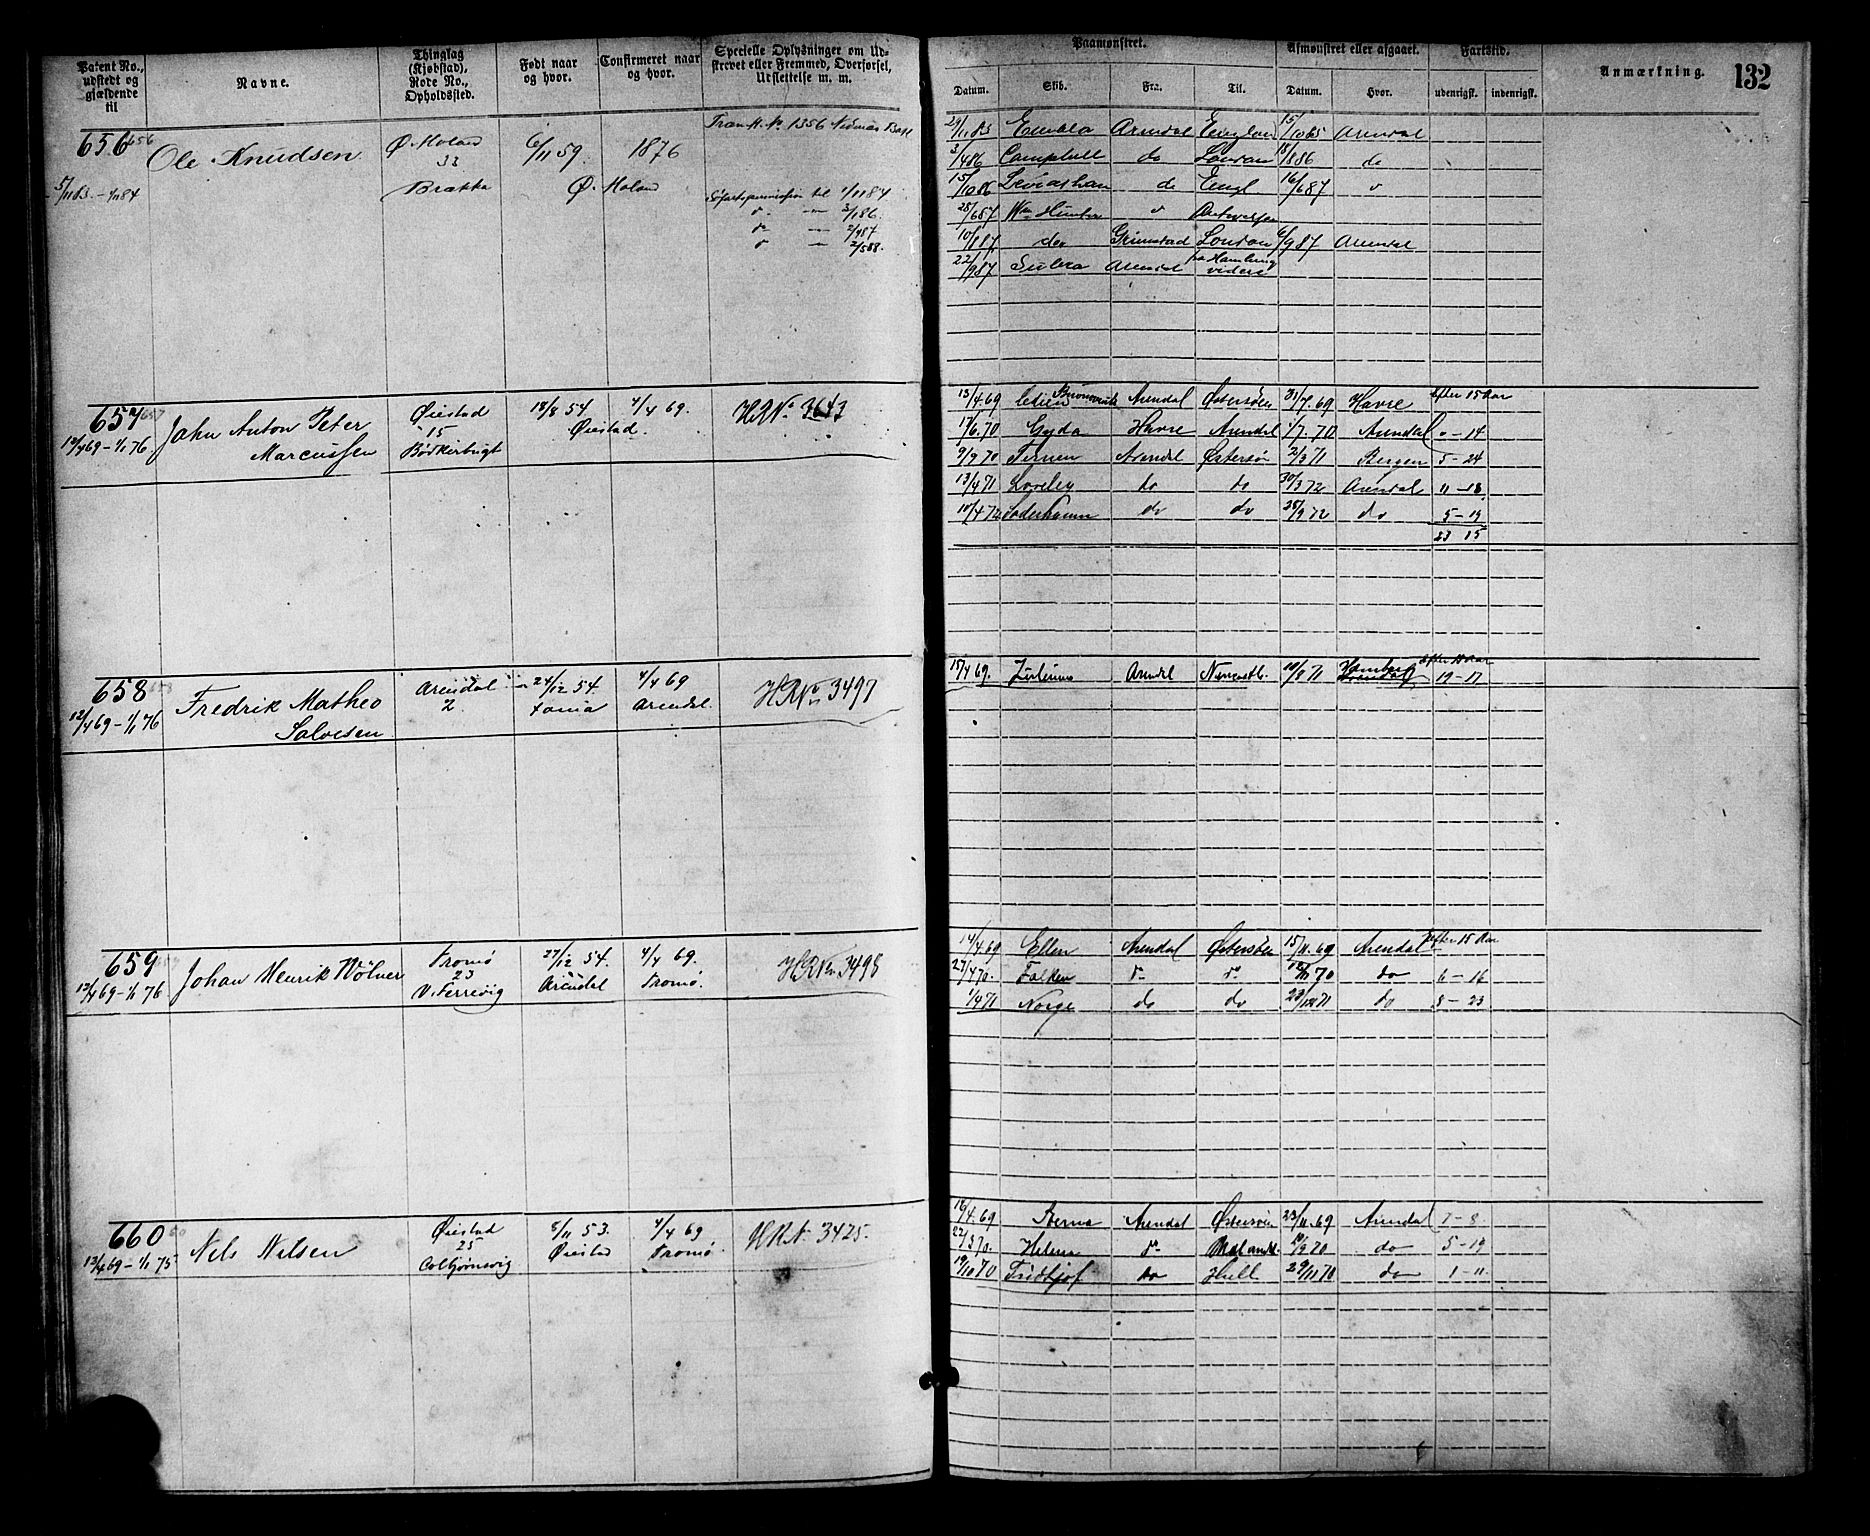 Patent No., udstedt og gjældende til
Navne.
Thinglag (Kjøbstad), Rode No., Opholdssted.
Født naar og hvor.
Confirmeret naar og hvor.
Specielle Oplysninger om Udskrevet eller Fremmed, Overførsel, Udslettelse m. m.
Paamønstret.
Datum. Skib. Fra. Til.
Afmønstret eller afgaaet.
Datum. Hvor.
Fartstid.
udenrigsk. indenrigsk.
Anmærkning.
132
656 656
5/11 83 - 1/1 84
Ole Knudsen
Ø. Moland
33
Brække
6/11 59.
1876
Ø. Moland
No 1356
til 1/11 84
3/1 86.
2/4 87
2/5 88.
29/11 83 Embla Arendal 15/10 85 Arendal
3/4 86 Campbell do London 18/8 86 do
15/10 86 Leviathan do Engl 16/6 87
28/6 87 Wm Hunter Antwerpen
10/8 87 do Grimstad London 6/9 87 Arendal
22/9 87 Arendal Hamburg videre
657 657
12/4 69 - 1/1 76
John Anton Peter
Marcussen
Øiestad
15
Bødkerbugt
18/8 54.
4/4 69.
Øiestad.
HR No. 3643
13/4 69 Arendal Østersøen 31/7 69 Havre Efter 15 Aar
17/6 70 Gyda Havre Arendal 1/7 70 Arendal 0 - 14
9/9 70 Ternen Arendal Østersø 2/3 71 Bergen 5 - 24
13/4 71 Loreley do do 30/3 72 Arendal 11 - 18
10/4 72 Søderhamn do do 28/9 72 do 5 - 19
23 15
658 658
12/4 69 - 1/1 76
Fredrik Matheo
Salvesen
Arendal
2
24/12 54.
4/4 69
Arendal.
HR No 3497
15/4 69. Arendal 10/8 71 Hamburg 19 - 17
659 659
12/4 69 - 1/1 76
Johan Henrik Wölner
Tromø
23
V. Ferrevig
27/12 54.
Arendal
4/4 69.
Tromø.
HR No 3498
14/4 69 Ellen Arendal Østersøen 15/11 69 Arendal Efter 15 Aar
27/4 70. Falken do do 12/11 70 do 6 - 16
1/4 71 Norge do do 23/12 71 do 8 - 23
660
13/4 69 - 1/1 75
Nels Nelsen
Øiestad
25
Colbjørnsvig
8/11 53.
Øiestad
4/4 69
Tromø.
HR No 3425.
14/4 69 Berna Arendal Østersøen 23/11 69 Arendal 7 - 8
22/3 70. Helene do 10/9 70 do 5 - 19
19/10 70 Fridtjof do Hull 29/11 70 do 1 - 11